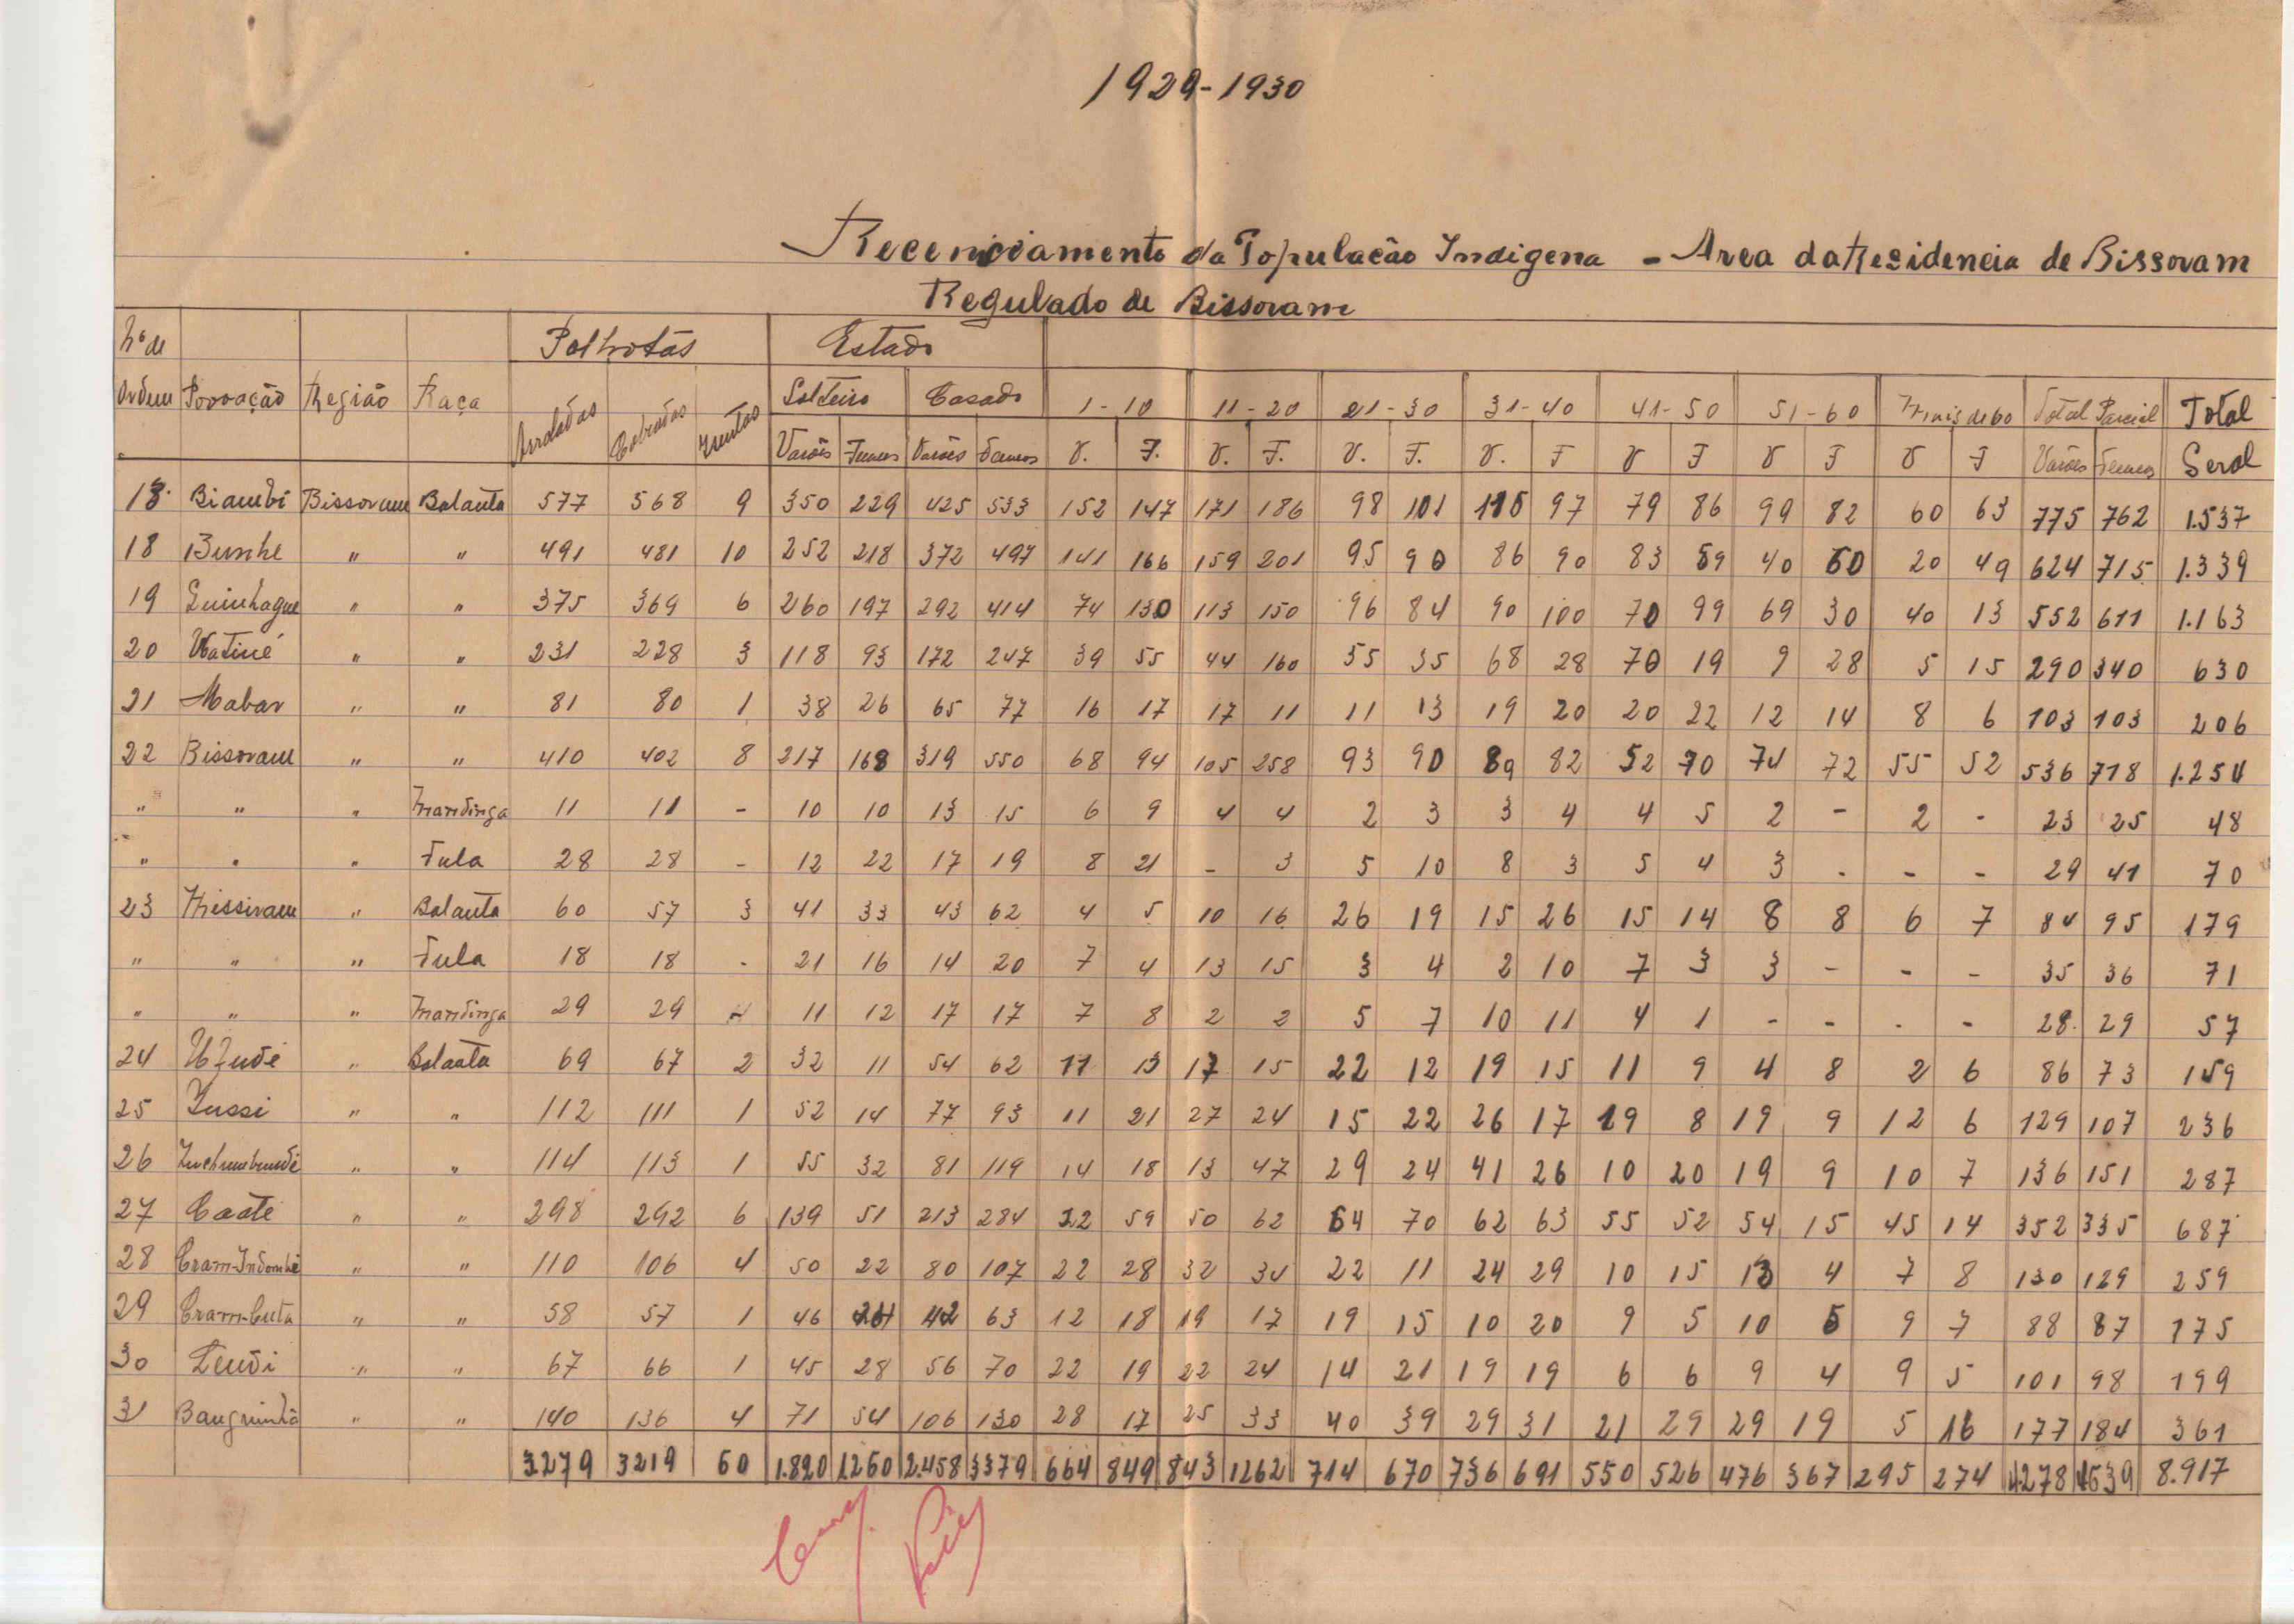 1929-1930
Recenciamento da População Indigena - Area da Residencia de Bissoram
Regulado de Bissoram
Nº de Palhotas Estado
Ordem Povoação Região Raça Arroladas Cobradas Izentas Solteiro Casado 1-10 11-20 21-30 31-40 41-50 51-60 Mais de 60 Total Parcial Total
Varões Femeas Varões Femeas V. F. V. F. V. F. V. F V F V F V F Varões Femeas Geral
18 Biambi Bissoram Balanta 577 568 9 350 229 425 533 152 147 171 186 98 101 116 97 79 86 99 82 60 63 775 762 1.537
18 Bunhe " " 491 481 10 252 218 372 497 141 166 159 201 95 90 86 90 83 59 40 60 20 49 624 715 1.339
19 Quinhaque " " 375 369 6 260 197 292 414 74 130 113 150 96 84 90 100 70 99 69 30 40 13 552 611 1.163
20 Watiné " " 231 228 3 118 93 172 247 39 55 44 160 55 35 68 28 70 19 9 28 5 15 290 340 630
21 Mabar " " 81 80 1 38 26 65 77 16 17 17 11 11 13 19 20 20 22 12 14 8 6 103 103 206
22 Bissoram " " 410 402 8 217 168 319 550 68 94 105 258 93 90 89 82 52 70 74 72 55 52 536 718 1.254
" " " Mandinga 11 11 - 10 10 13 15 6 9 4 4 2 3 3 4 4 5 2 - 2 - 23 25 48
" " " Fula 28 28 - 12 22 17 19 8 21 - 3 5 10 8 3 5 4 3 - - - 29 41 70
23 Missiram " Balanta 60 57 3 41 33 43 62 4 5 10 16 26 19 15 26 15 14 8 8 6 7 84 95 179
" " " Fula 18 18 - 21 16 14 20 7 4 13 15 3 4 2 10 7 3 3 - - - 35 36 71
" " " Mandinga 29 29 - 11 12 17 17 7 8 2 2 5 7 10 11 4 1 - - - - 28 29 57
24 Balanta 69 67 2 32 11 54 62 11 13 17 15 22 12 19 15 11 9 4 8 2 6 86 73 159
25 Zussi " " 112 111 1 52 14 77 93 11 21 27 24 15 22 26 17 19 8 19 9 12 6 129 107 236
26 " " 114 113 1 55 32 81 119 14 18 13 47 29 24 41 26 10 20 19 9 10 7 136 151 287
27 Caate " " 298 292 6 139 51 213 284 22 59 50 62 64 70 62 63 55 52 54 15 45 14 352 335 687
28 " " 110 106 4 50 22 80 107 22 28 32 34 22 11 24 29 10 15 13 4 7 8 130 129 259
29 Cram-Cuta " " 58 57 1 46 24 42 63 12 18 19 17 19 15 10 20 9 5 10 5 9 7 88 87 175
30 " " 67 66 1 45 28 56 70 22 19 22 24 14 21 19 19 6 6 9 4 9 5 101 98 199
31 " " 140 136 4 71 54 106 130 28 17 25 33 40 39 29 31 21 29 29 19 5 16 177 184 361
3279 3219 60 1.820 1.260 2.458 3379 664 849 843 1262 714 670 736 691 550 526 476 367 295 274 4.278 4639 8.917